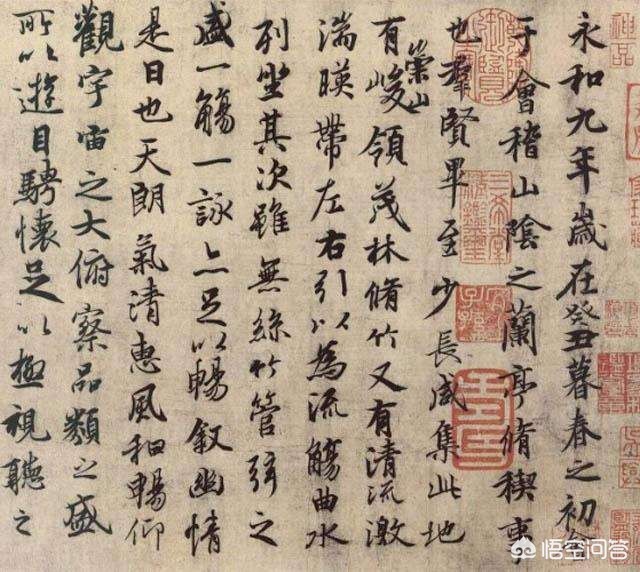 永和九年歲在癸丑暮春之初會
于會稽山陰之蘭亭脩稧事
也羣賢畢至少長咸集此地
有崇山峻領茂林脩竹又有清流激
湍暎帶左右引以為流觴曲水
列坐其次雖無絲竹管弦之
盛一觴一詠亦足以暢敘幽情
是日也天朗氣清惠風和暢仰
觀宇宙之大俯察品類之盛
所以遊目騁懷足以極視聽之
神品
悟空问答